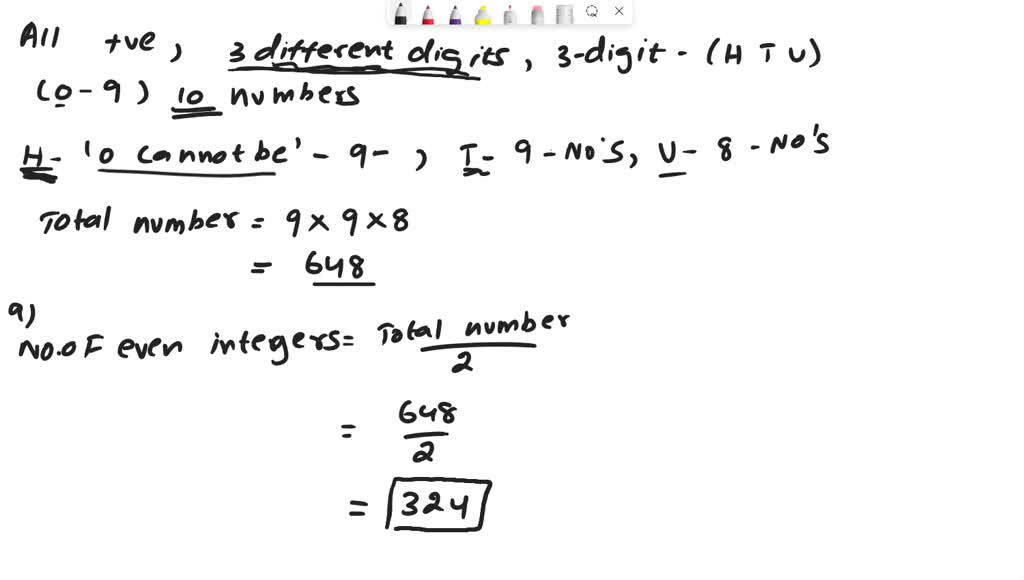 All +ve, 3 different digits, 3-digit - (H T U)
(0-9) 10 numbers
H- '0 cannot be' - 9-, T- 9-No's, U- 8-No's
Total number = 9 × 9 × 8
= 648
a)
No.oF even integers = Total number / 2
= 648 / 2
= 324